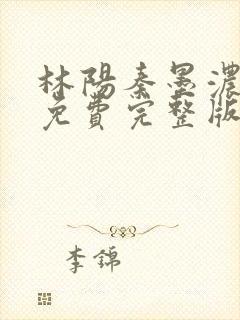 林陽秦墨濃
免費完整版
李錦